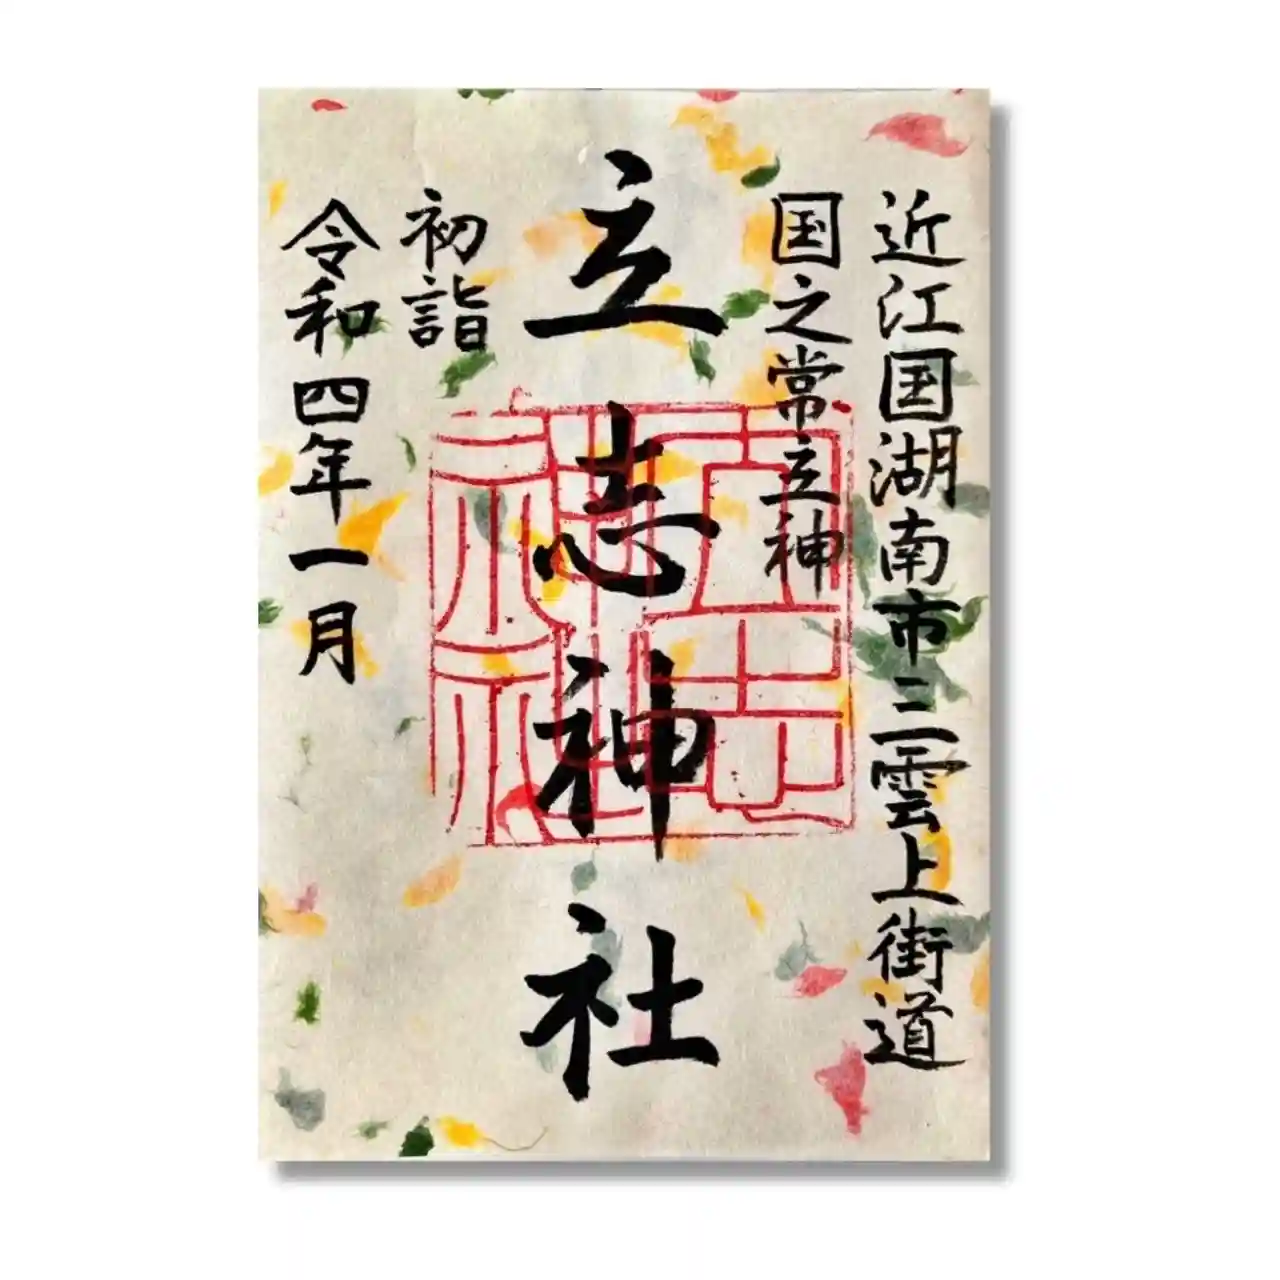 近江国湖南市三雲上街道
国之常立神
立志神社
初詣
令和四年一月
立志神社